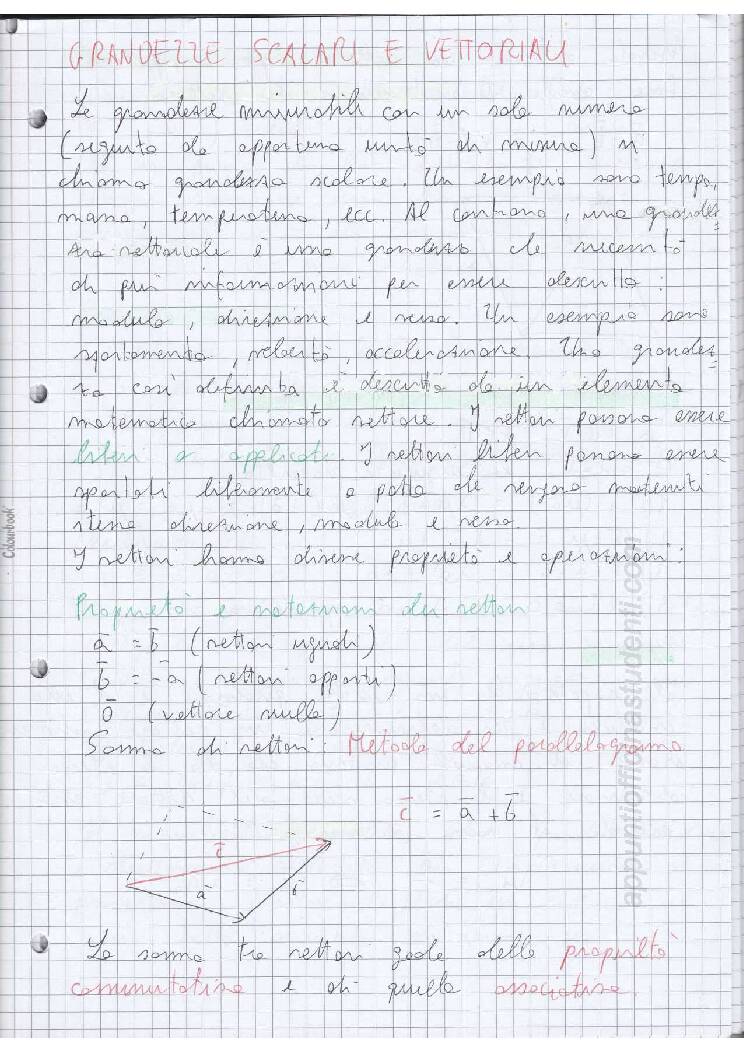 GRANDEZZE SCALARI E VETTORIALI
Le grandezze misurabili con un solo numero
(seguito da opportuna unità di misura) si
chiama grandezza scalare. Un esempio sono tempo,
massa, temperatura, ecc. Al contrario, una grandez=
za vettoriale è una grandezza che necessità
di più informazioni per essere descritta:
modulo, direzione e verso. Un esempio sono
spostamento, velocità, accelerazione. Una grandez=
za così definita è descritta da un elemento
matematico chiamato vettore. I vettori possono essere
liberi o applicati. I vettori liberi possono essere
spostati liberamente a patto che vengano mantenuti
stessa direzione, modulo e verso.
I vettori hanno diverse proprietà e operazioni:
Proprietà e notazioni dei vettori
a̅ = b̅ (vettori uguali)
b̅ = -a̅ (vettori opposti)
0̅ (vettore nullo)
Somma di vettori: Metodo del parallelogramma
c̅ = a̅ + b̅
c̅
a̅
b̅
La somma tra vettori gode della proprietà
commutativa e di quella associativa.
Colourbook
appuntiofficinastudenti.com